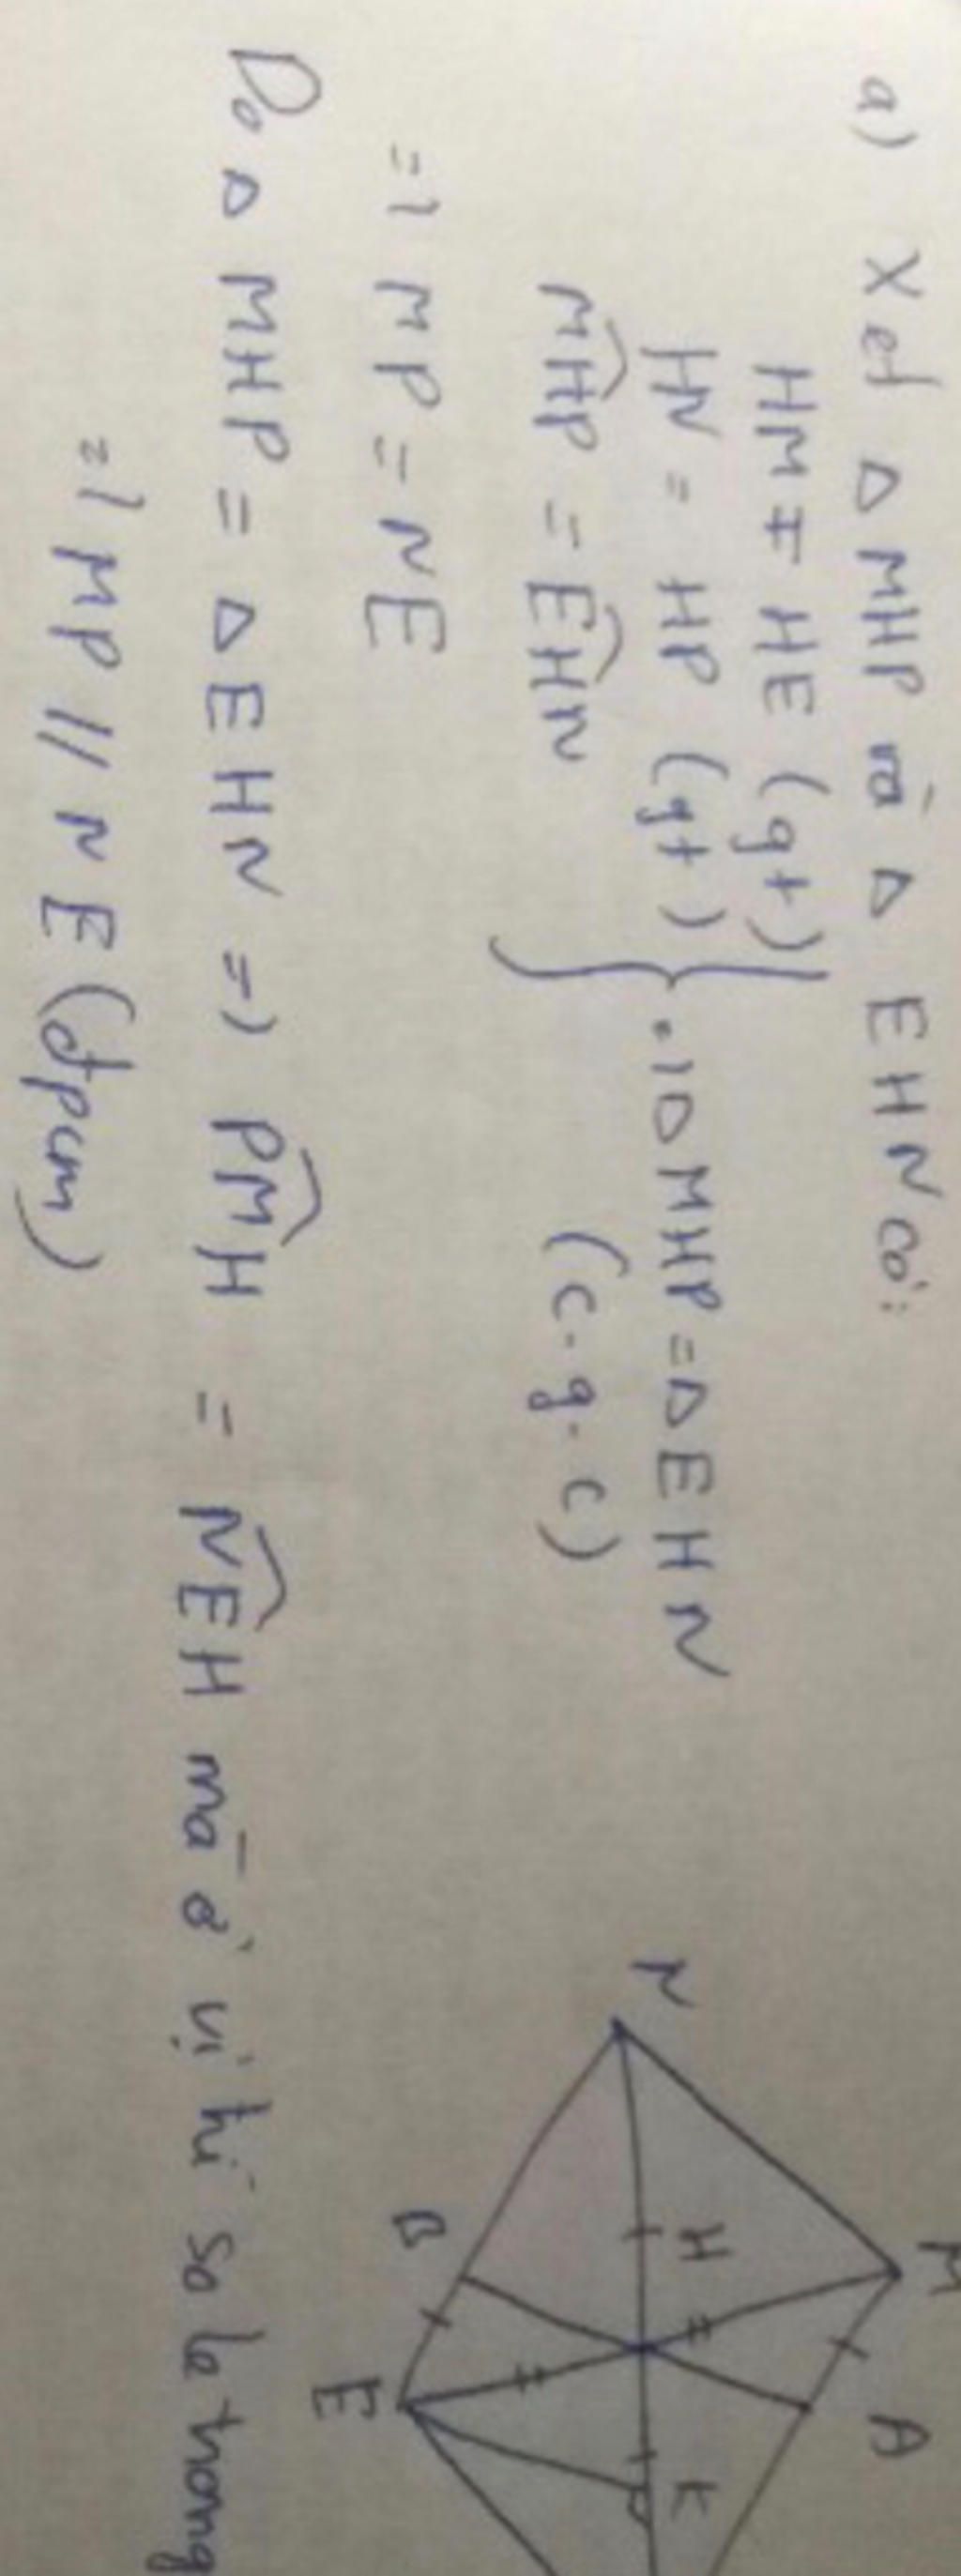 a) Xet Δ MHP và Δ EHN có:
HM = HE (gt)
HN = HP (gt)
MHP = EHN
=> Δ MHP = Δ EHN
(c.g.c)
=> MP = NE
Do Δ MHP = Δ EHN => PMH = NEH mà ở vị trí so le trong
=> MP // NE (đpcm)
N
M
H
A
B
K
E